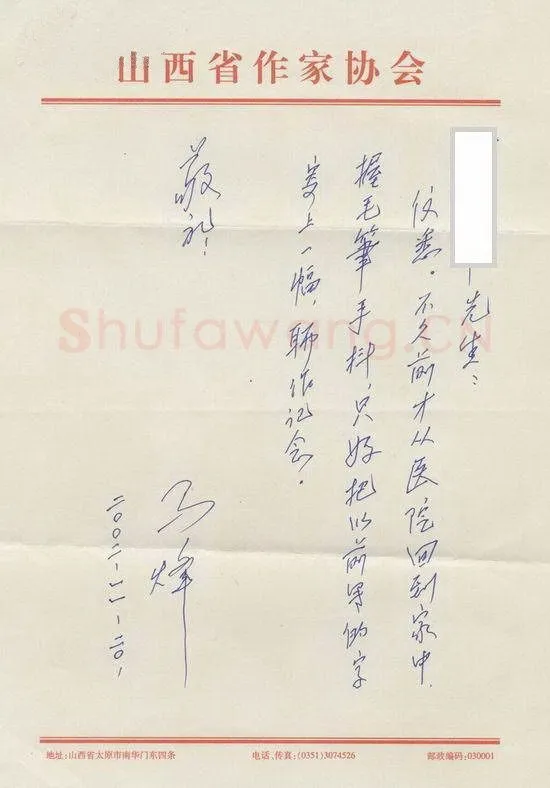 山西省作家协会
先生：
信悉。不久前才从医院回到家中，
握毛筆手抖，只好把以前写的字
寄上一幅，聊作记念。
敬礼！
马烽
二〇〇二·一一·二〇·
Shufawang.CN
地址：山西省太原市南华门东四条 电话、传真：(0351)3074526 邮政编码：030001